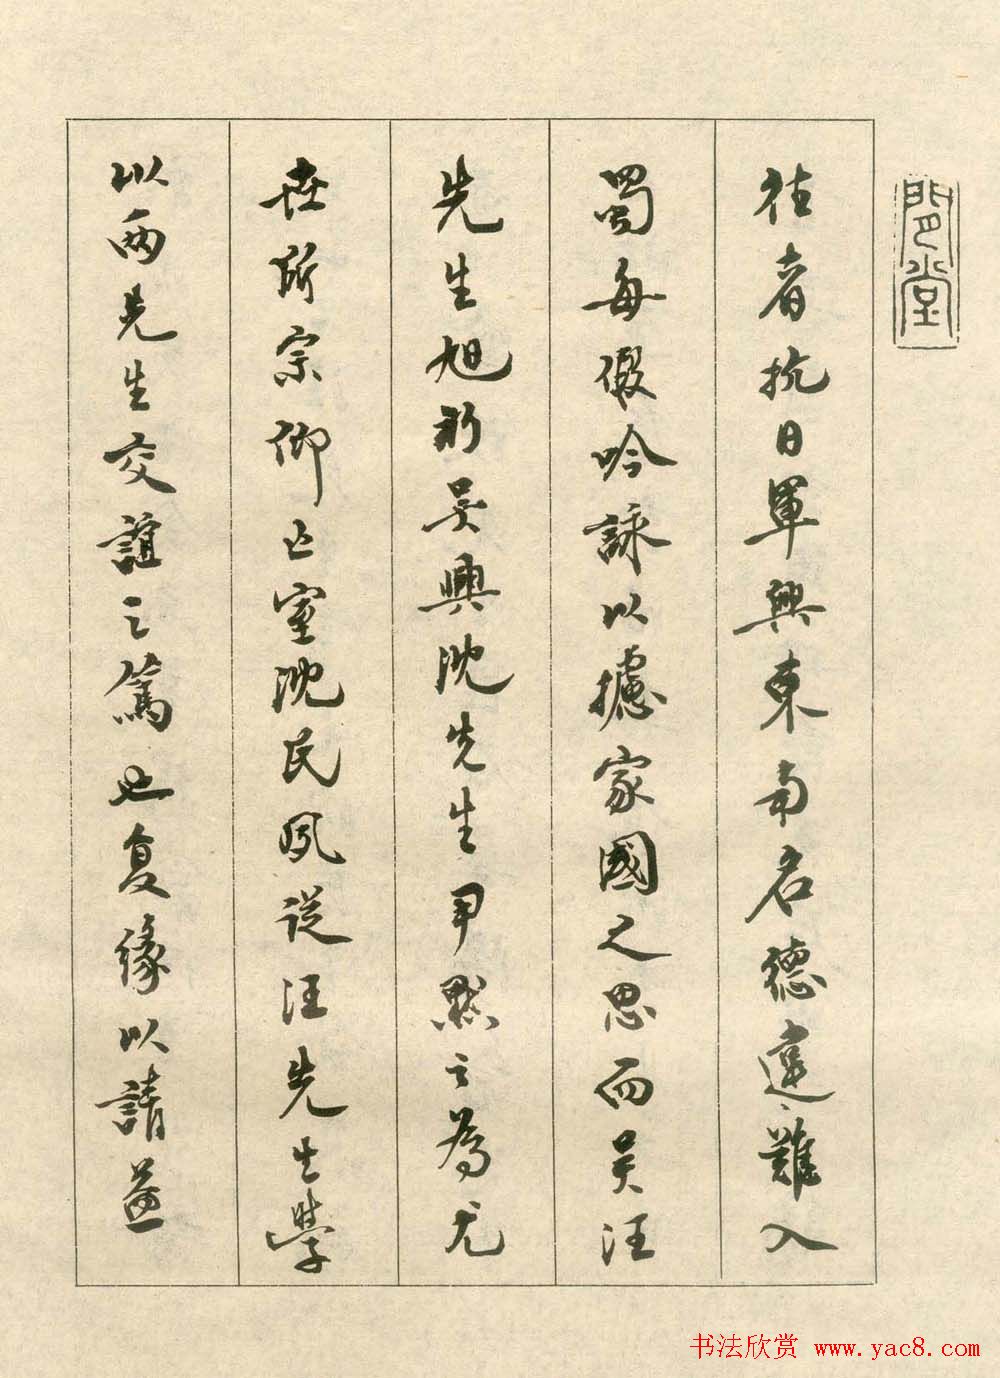 閒堂
往者抗日軍興東南名德違難入
蜀每假吟詠以攄家國之思而吴汪
先生旭初吴興沈先生尹默之為尤
世所宗仰亡室沈氏夙從汪先生學
以兩先生交誼之篤也复緣以請益
书法欣赏 www.yac8.com